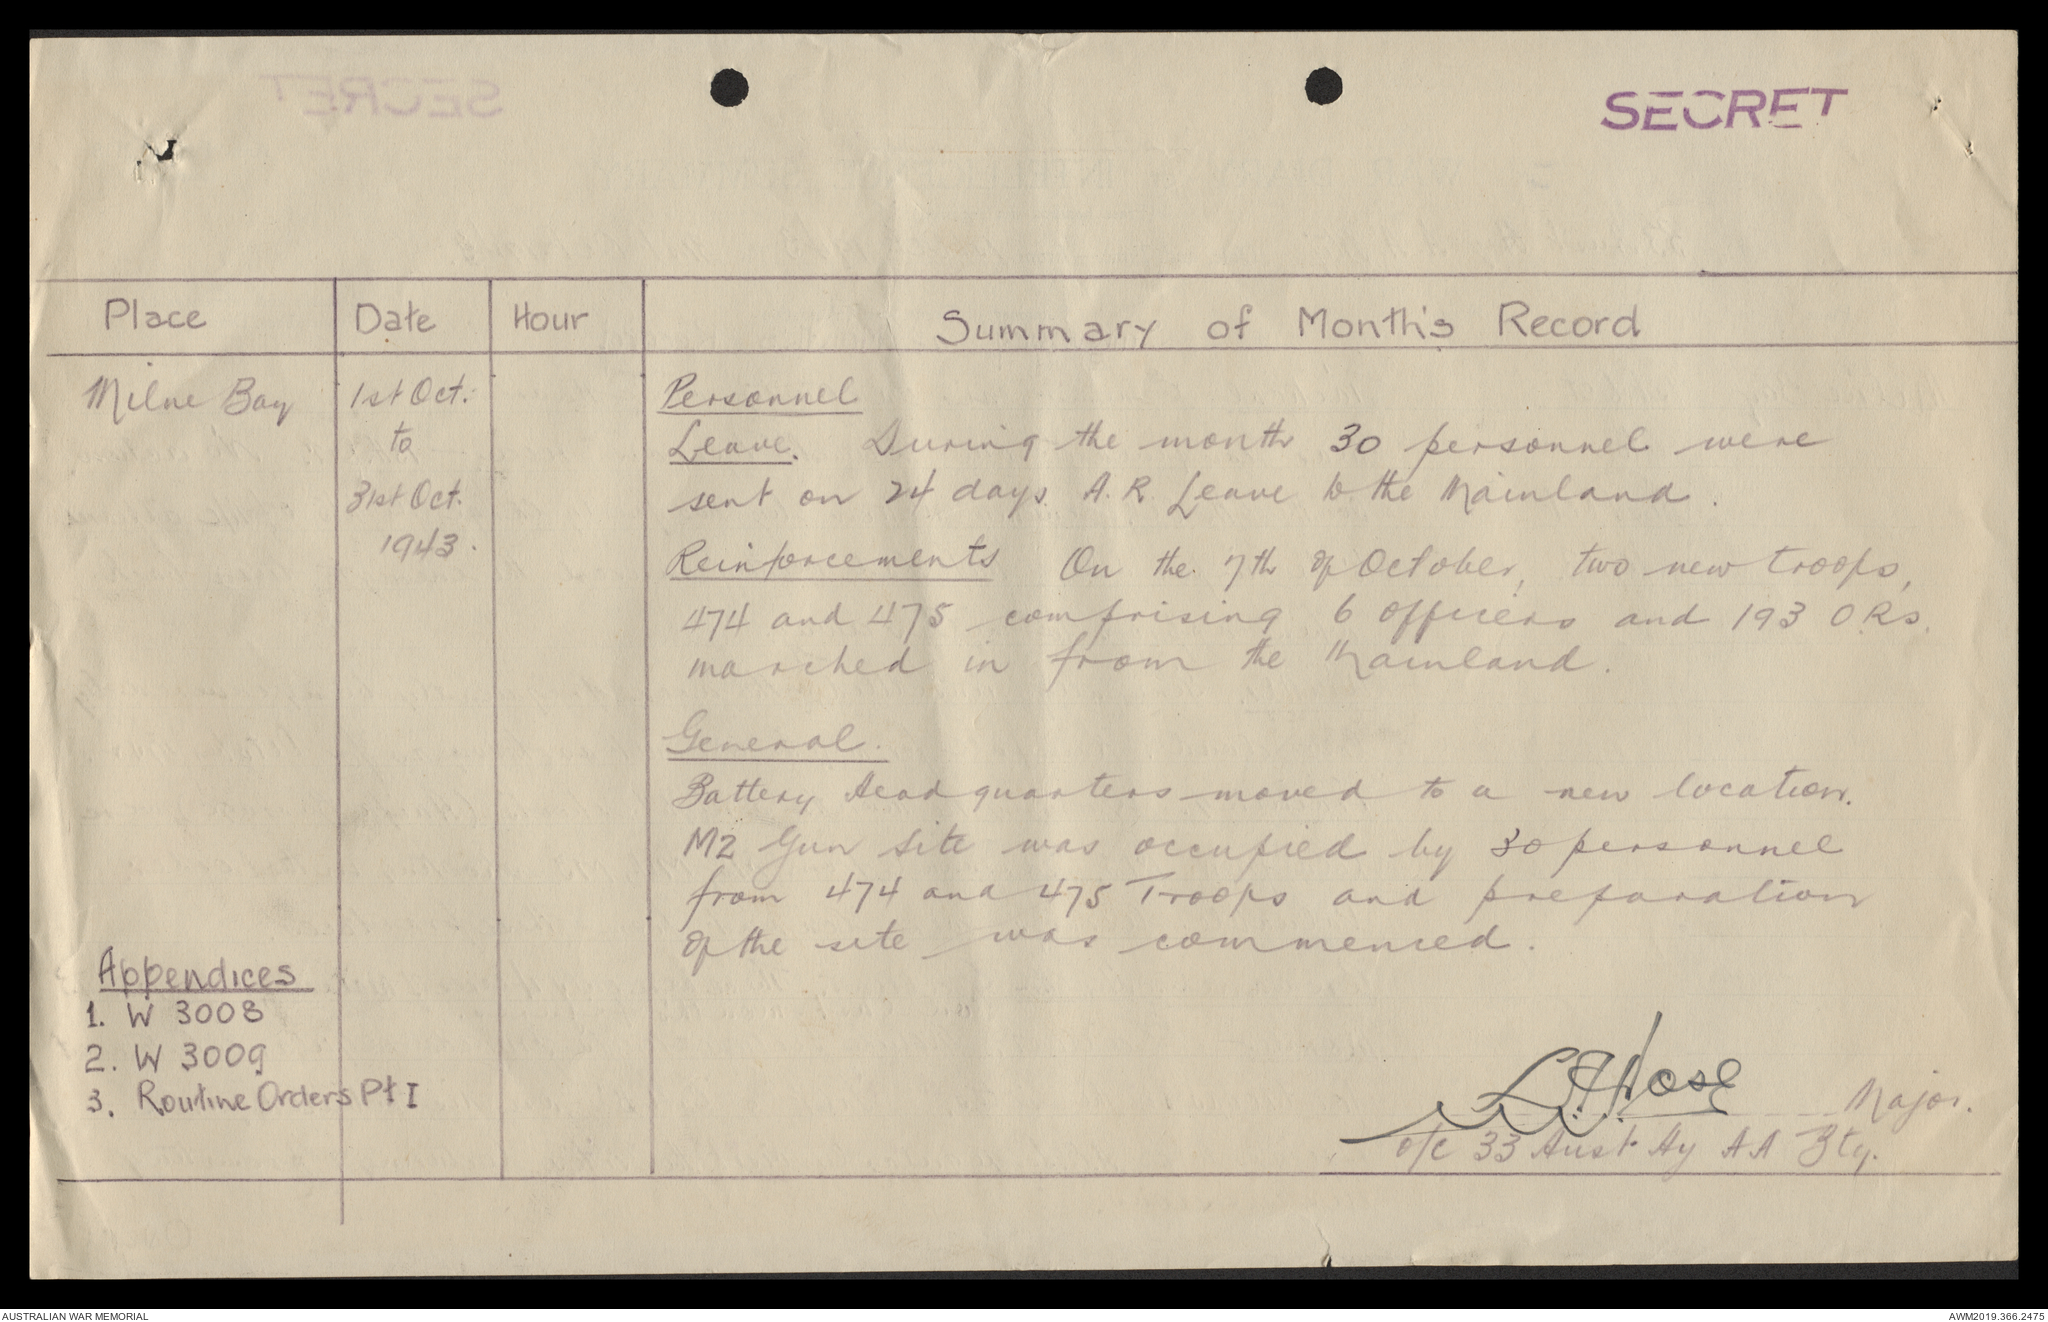 SECRET
Place Date Hour Summary of Month's Record
Milne Bay 1st Oct. to 31st Oct. 1943.
Personnel
Leave. During the month 30 personnel were
sent on 24 days A.R. Leave to the Mainland.
Reinforcements On the 7th of October, two new troops,
474 and 475 comprising 6 officers and 193 ORs.
marched in from the Mainland.
General.
Battery Headquarters moved to a new location.
M2 Gun Site was occupied by 30 personnel
from 474 and 475 Troops and preparation
of the site was commenced.
Appendices
1. W 3008
2. W 3009
3. Routine Orders Pt I
Hose Major.
o/c 33 Aust Hy AA Bty.
AUSTRALIAN WAR MEMORIAL
AWM2019.366.2475